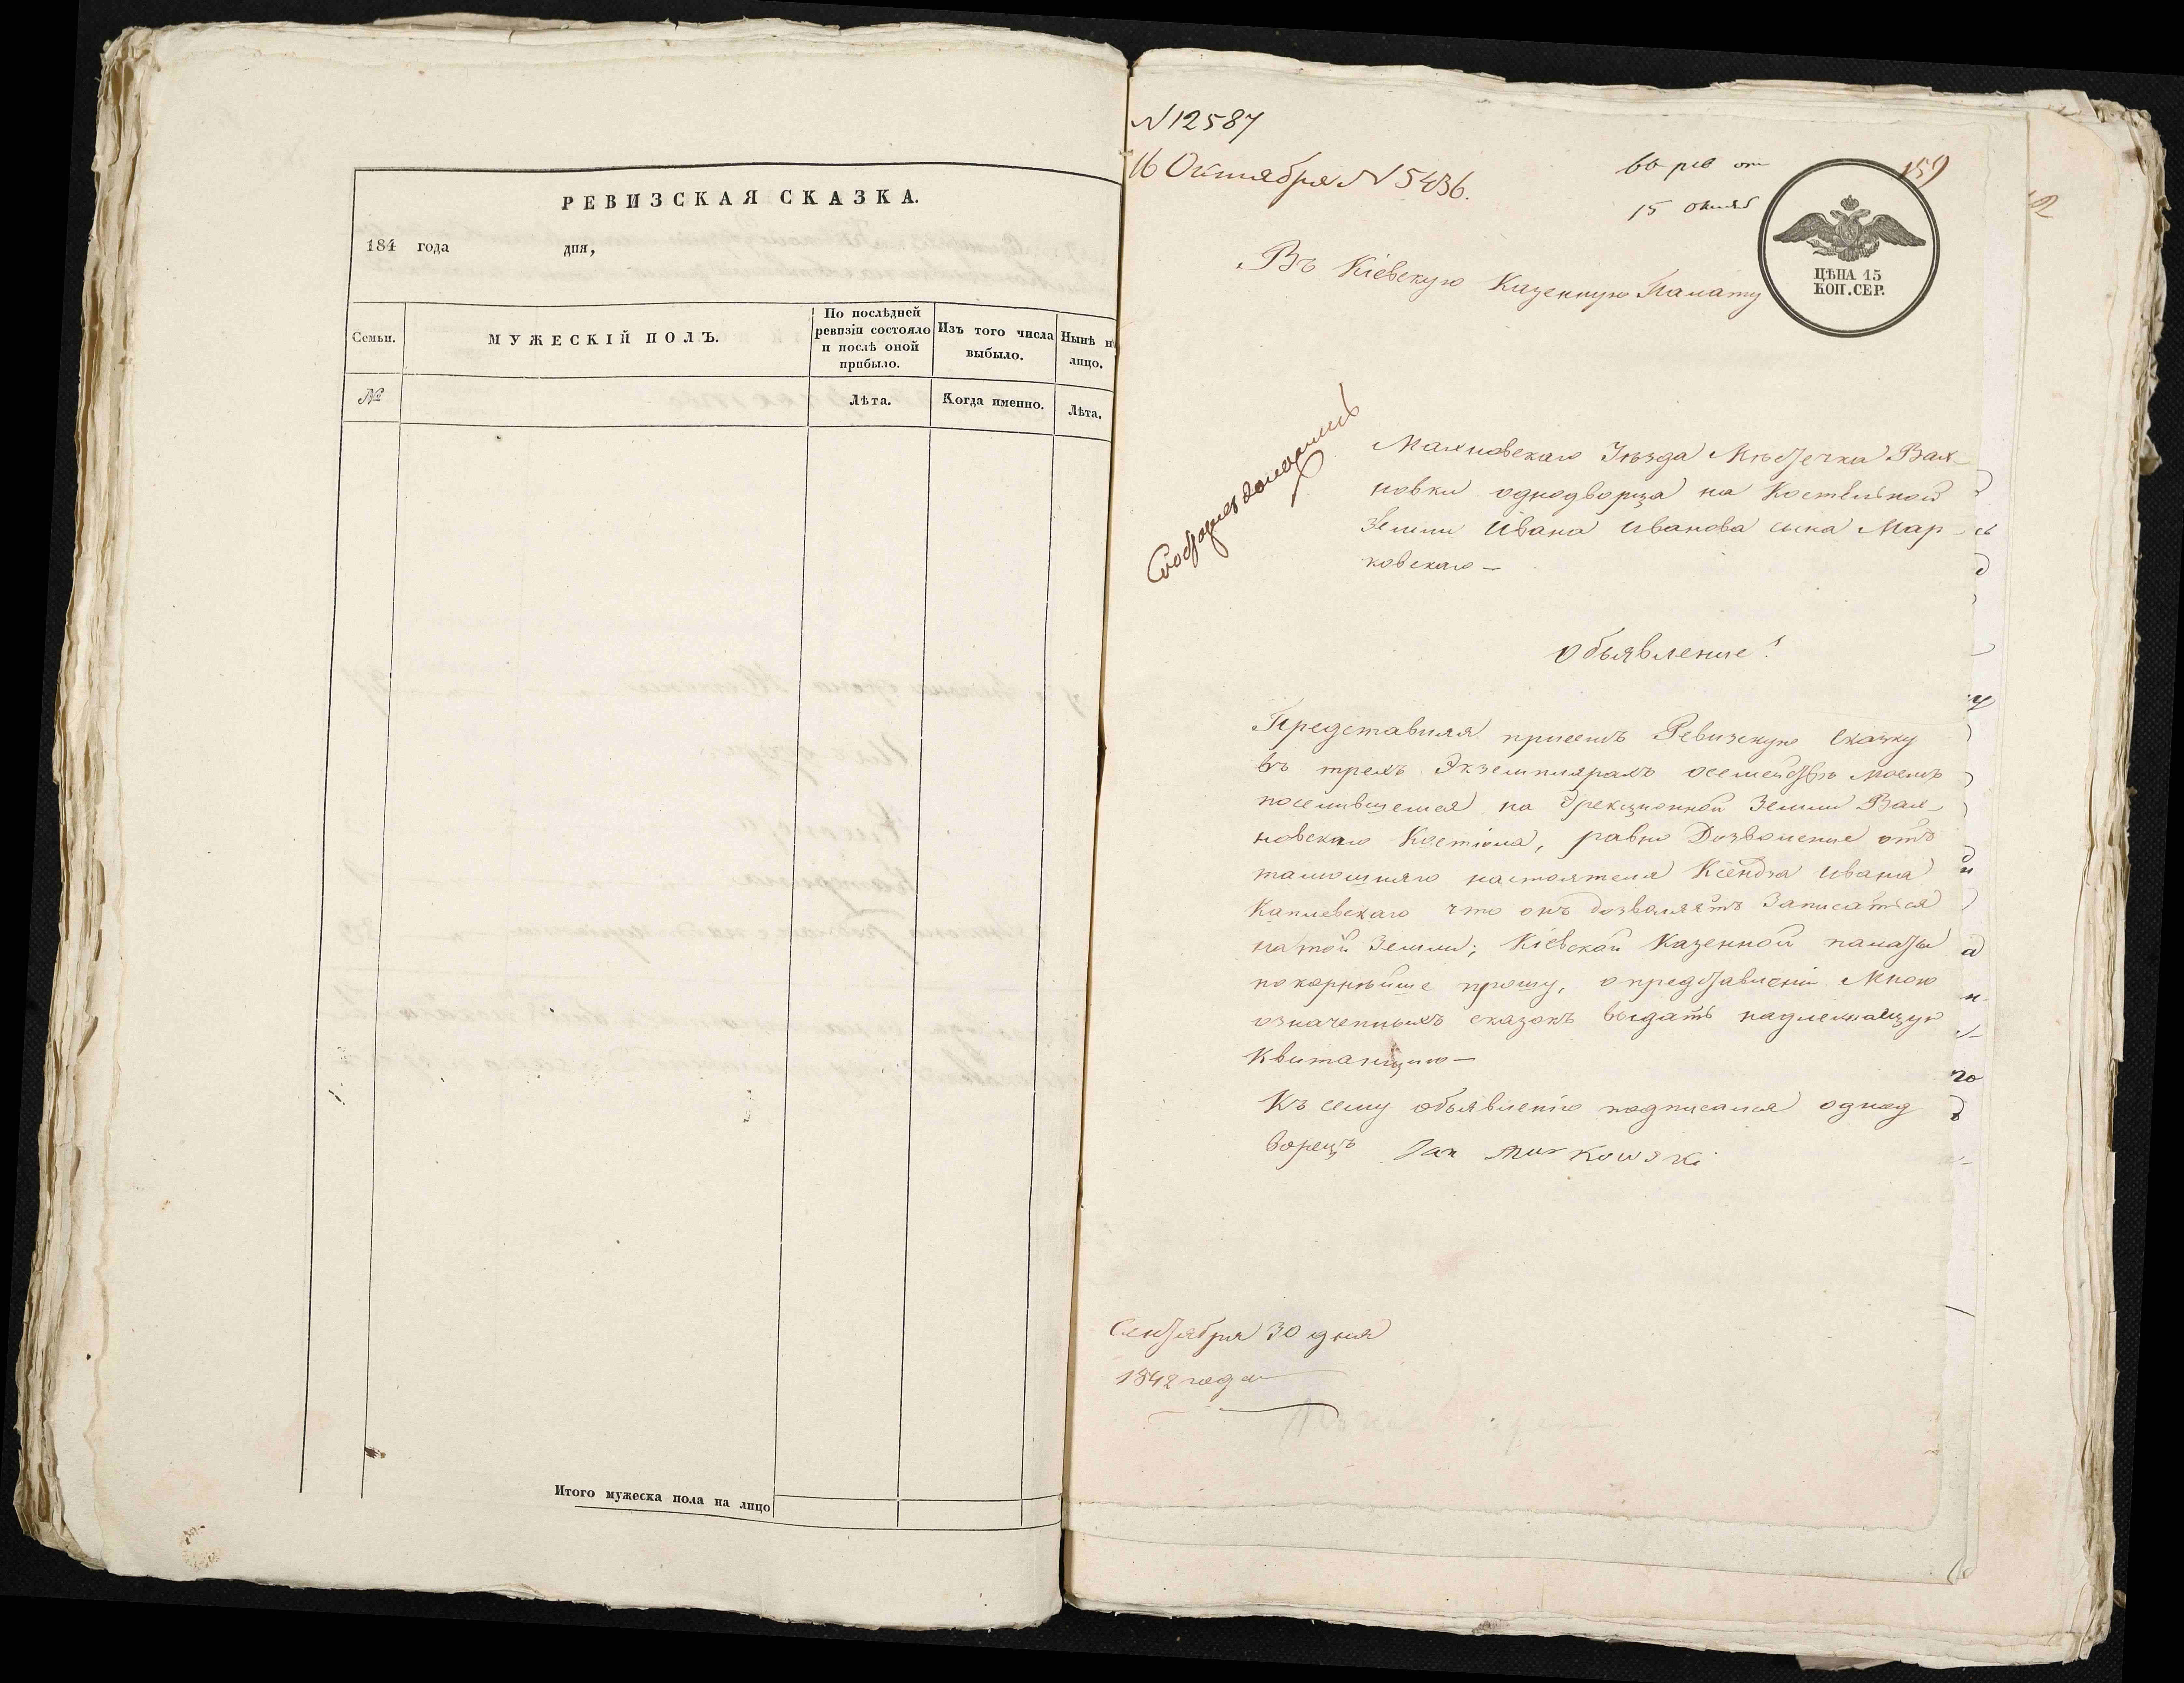 РЕВИЗСКАЯ СКАЗКА.
184 года дня,
Семьи.
МУЖЕСКІЙ ПОЛЪ.
По послѣдней
ревизіи состояло
и послѣ оной
прибыло.
Изъ того числа
выбыло.
Нынѣ н
лицо.
№
Лѣта.
Когда именно.
Лѣта.
Итого мужеска пола на лицо
N 12587
16 Октября N 5436.
во рев от
15 октяб
159
ЦѢНА 15
КОП. СЕР.
Въ Кіевскую Казенную Палату
Махновскаго Уѣзда Мѣстечка Вах-
новки однодворца на Костельной
Земли Ивана Иванова сына Мар-
ковскаго —
Объявление!
Представляя присемъ Ревизскую Сказку
въ трехъ Экземплярахъ осемействѣ моемъ
поселившемся на Эрекционной Земли Вах-
новскаго Костіола, равно Дозволение отъ
тамошняго настоятеля Ксендза Ивана
что онъ дозваляетъ Записатся
на той Земли; Кіевской Казенной палаты
покорнѣйше прошу, о представлении Мною
означенныхъ сказокъ выдать надлежащую
Квитанцию —
Къ сему объявленію подписался однод
ворецъ Jan Markowski
Сентября 30 дня
1842 года